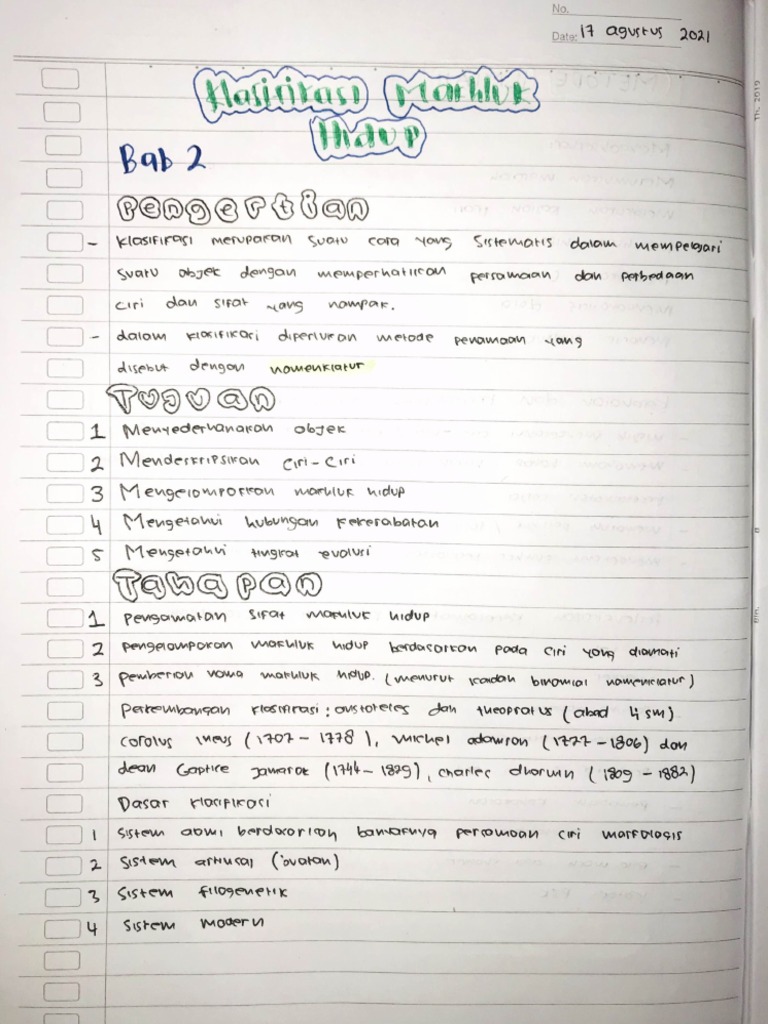 No.
Date: 17 agustus 2021
Klasifikasi Makhluk
Hidup
Bab 2
Pengertian
- Klasifikasi merupakan suatu cara yang sistematis dalam mempelajari
suatu objek dengan memperhatikan persamaan dan perbedaan
ciri dan sifat yang nampak.
- dalam klasifikasi diperlukan metode penamaan yang
disebut dengan nomenklatur
Tujuan
1 Menyederhanakan objek
2 Mendeskripsikan ciri-ciri
3 Mengelompokkan makhluk hidup
4 Mengetahui hubungan kekerabatan
5 Mengetahui tingkat evolusi
Tahapan
1 pengamatan sifat makhluk hidup
2 pengelompokan makhluk hidup berdasarkan pada ciri yang diamati
3 pemberian nama makhluk hidup. (menurut kaidah binomial nomenklatur)
Perkembangan klasifikasi: aristoteles dan theopratus (abad 4 sm)
carolus (1707 - 1778), michel (1727 - 1806) dan
(1744 - 1829), charles (1809 - 1882)
Dasar klasifikasi
1 Sistem berdasarkan persamaan ciri marfologis
2 Sistem
3 Sistem filogenetik
4 Sistem modern
Th. 2019
Bln.